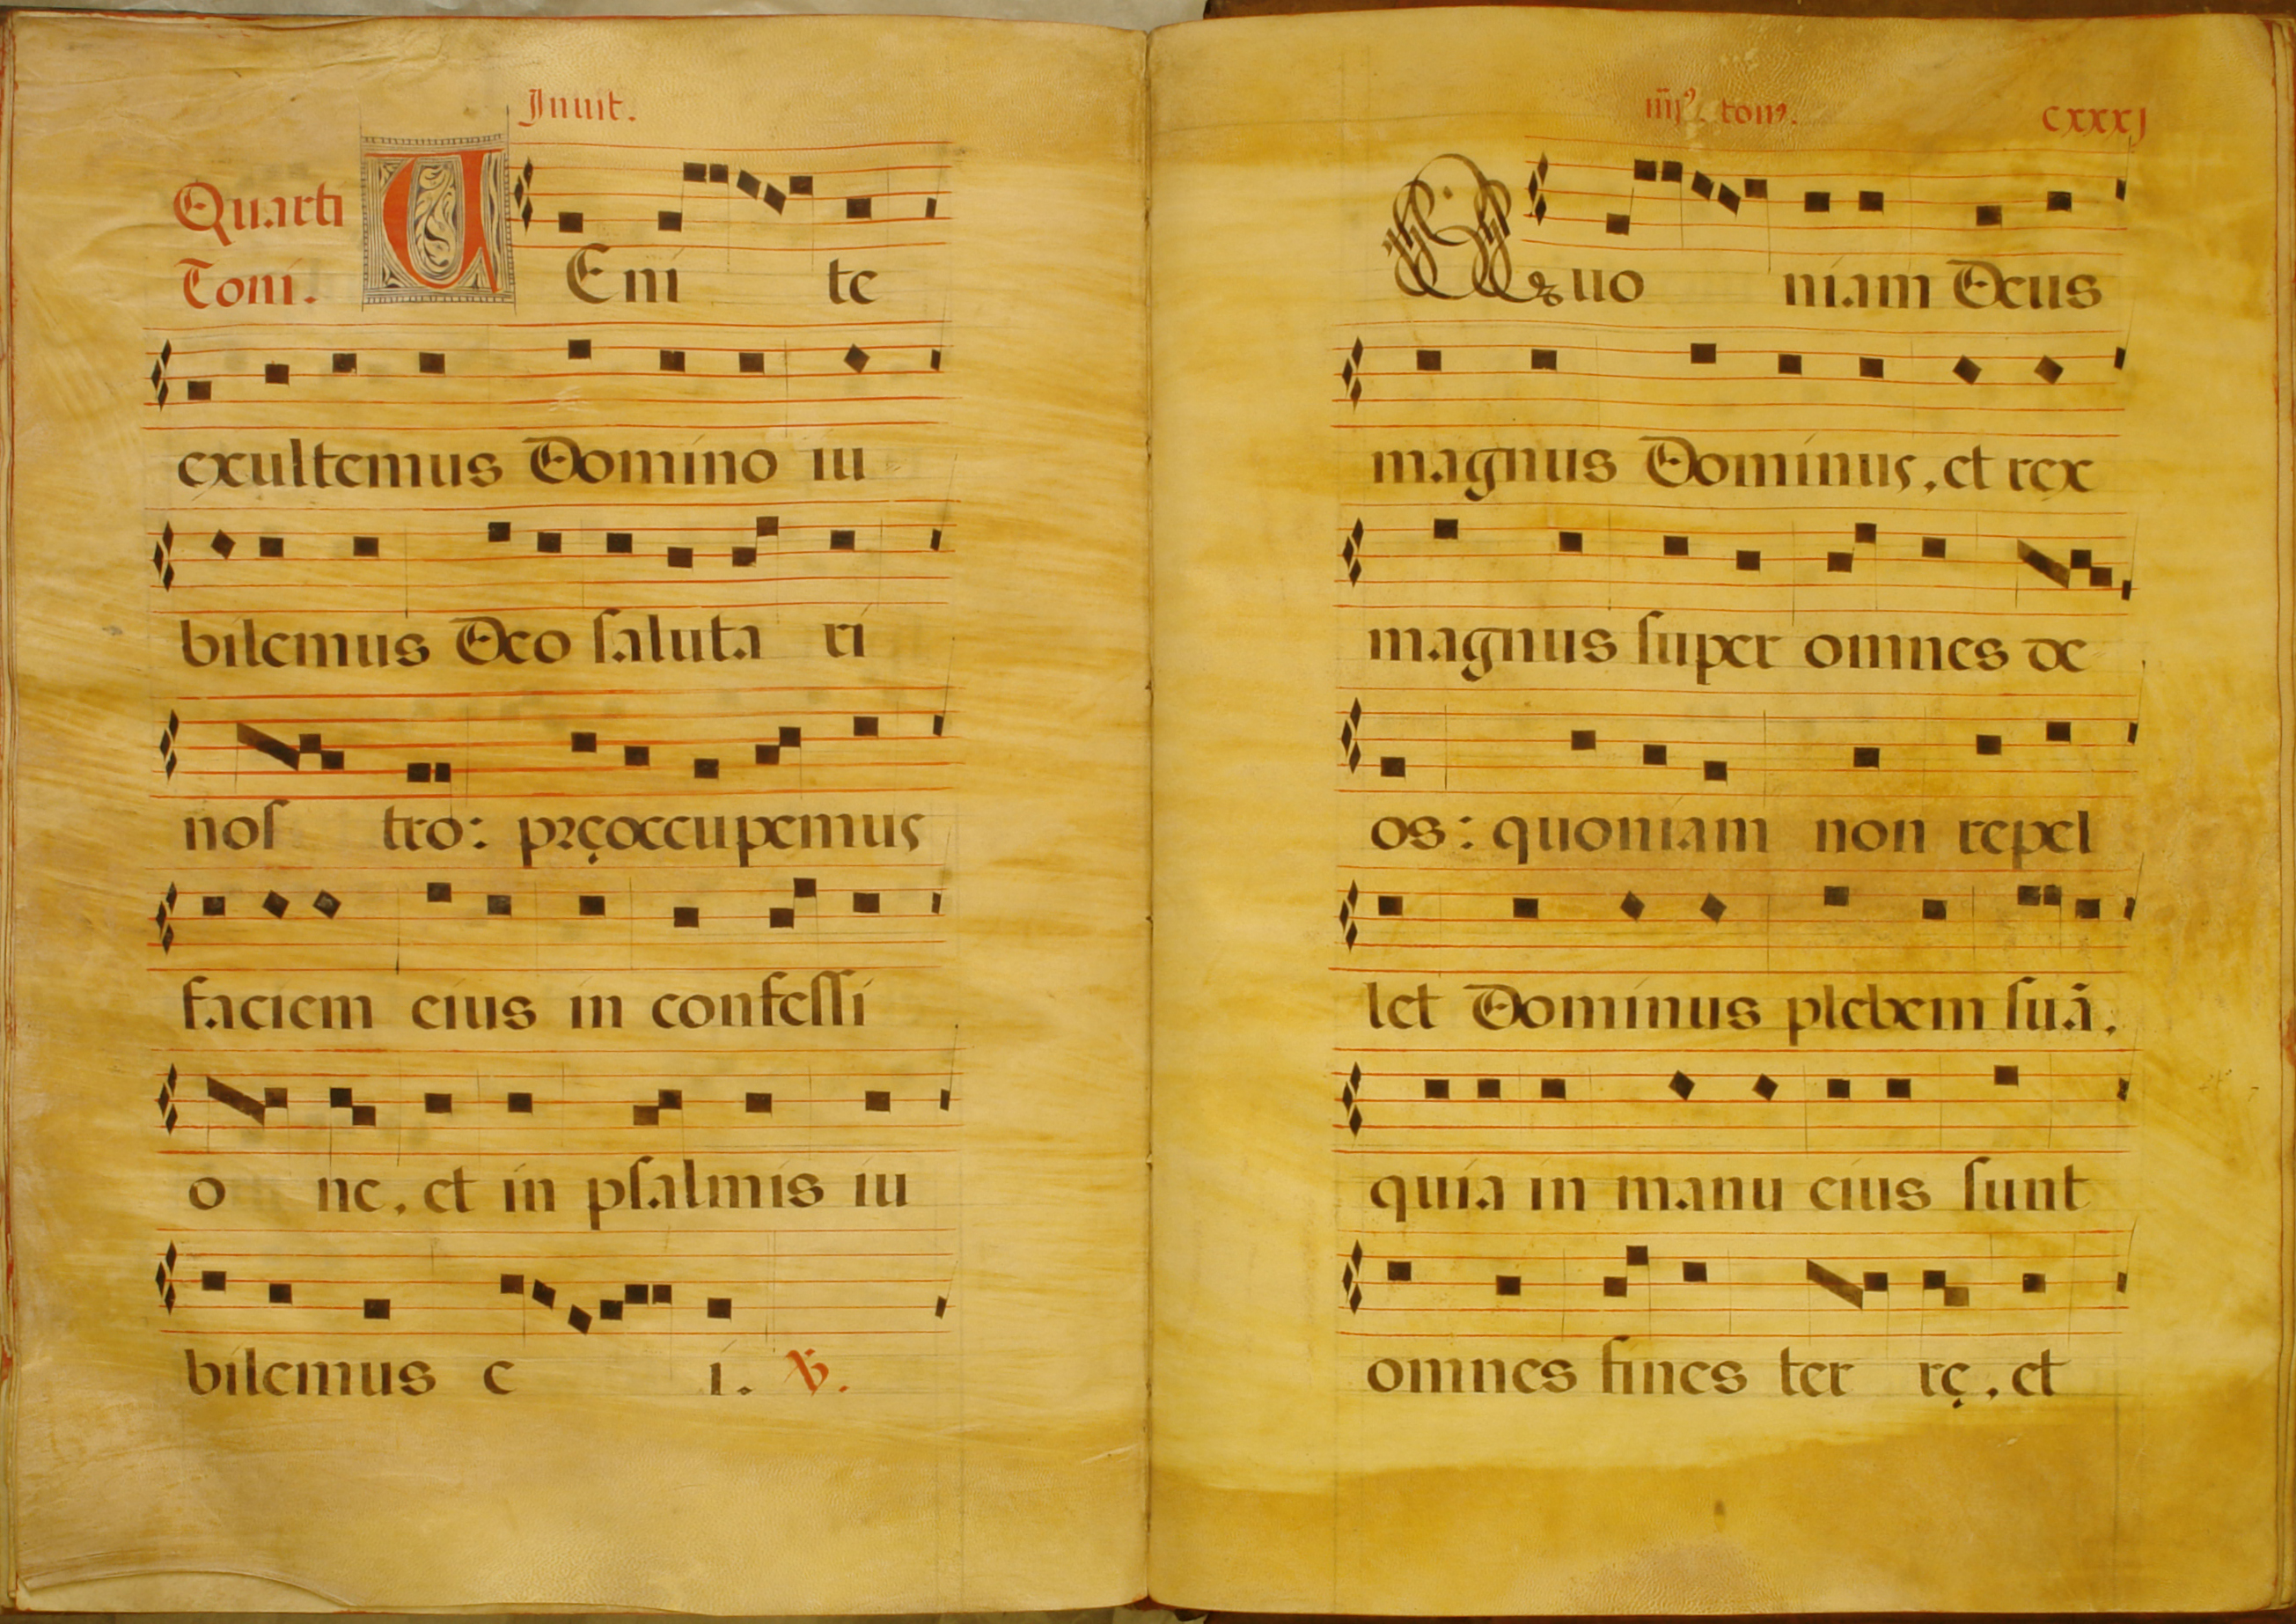 Inuit.
Quarti
Toni.
UEni te
exultemus Domino iu
bilemus Deo ſaluta ri
noſ tro: pręoccupemus
faciem eius in confeſſi
o ne, et in pſalmis iu
bilemus e i. ℣.
iiij⁹. ton⁹. cxxxj
Quo niam Deus
magnus Dominus, et rex
magnus ſuper omnes de
os: quoniam non repel
let Dominus plebem ſuā,
quia in manu eius ſunt
omnes fines ter rę, et